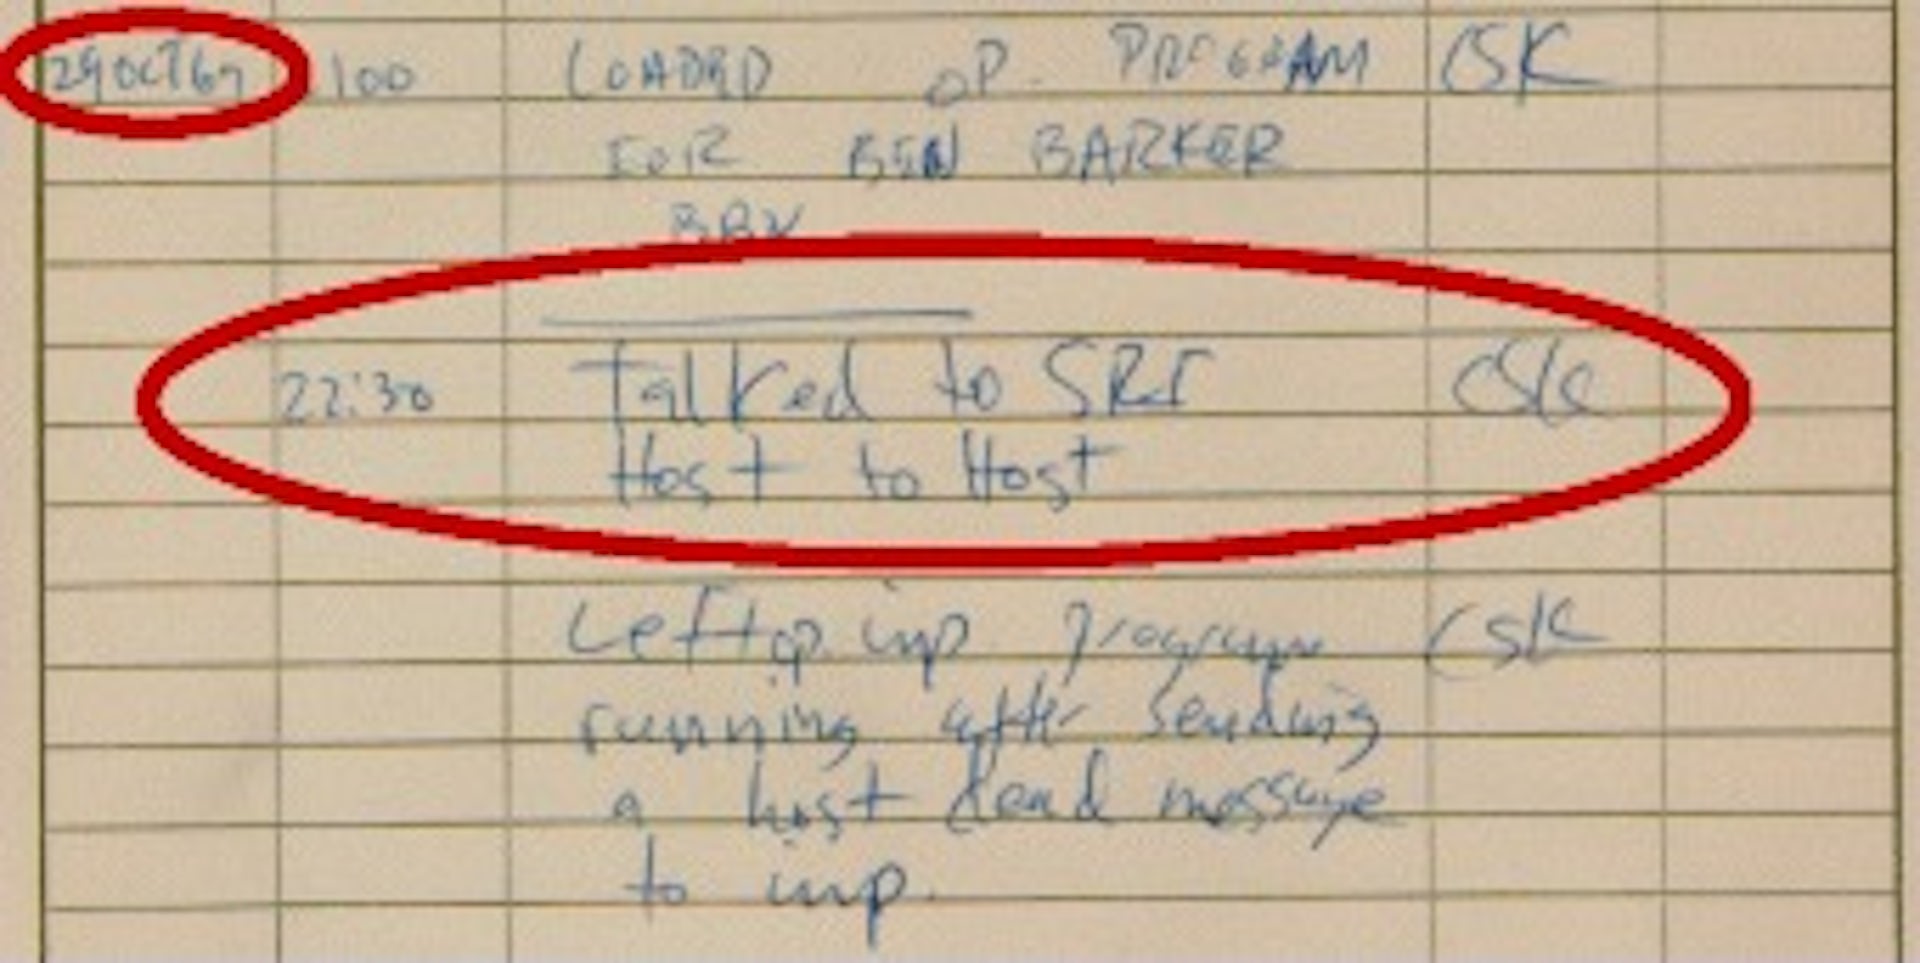 29 OCT 69 100 LOADED OP. PROGRAM CSK
FOR BEN BARKER
BBN
22:30 Talked to SRI CSK
Host to Host
Left op. imp program CSK
running after sending
a host dead message
to imp.